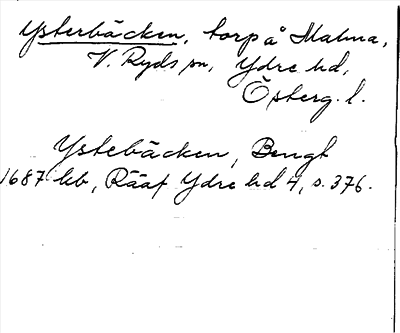 Ysterbäcken, torp å Malma,
V. Ryds sn, Ydre hd,
Österg. l.
Ystebäcken, Bengt
1687 kb, Rääf Ydre hd 4, s. 376.